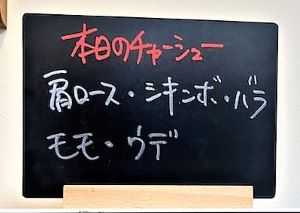 本日のチャーシュー
肩ロース・シキンボ・バラ
モモ・ウデ